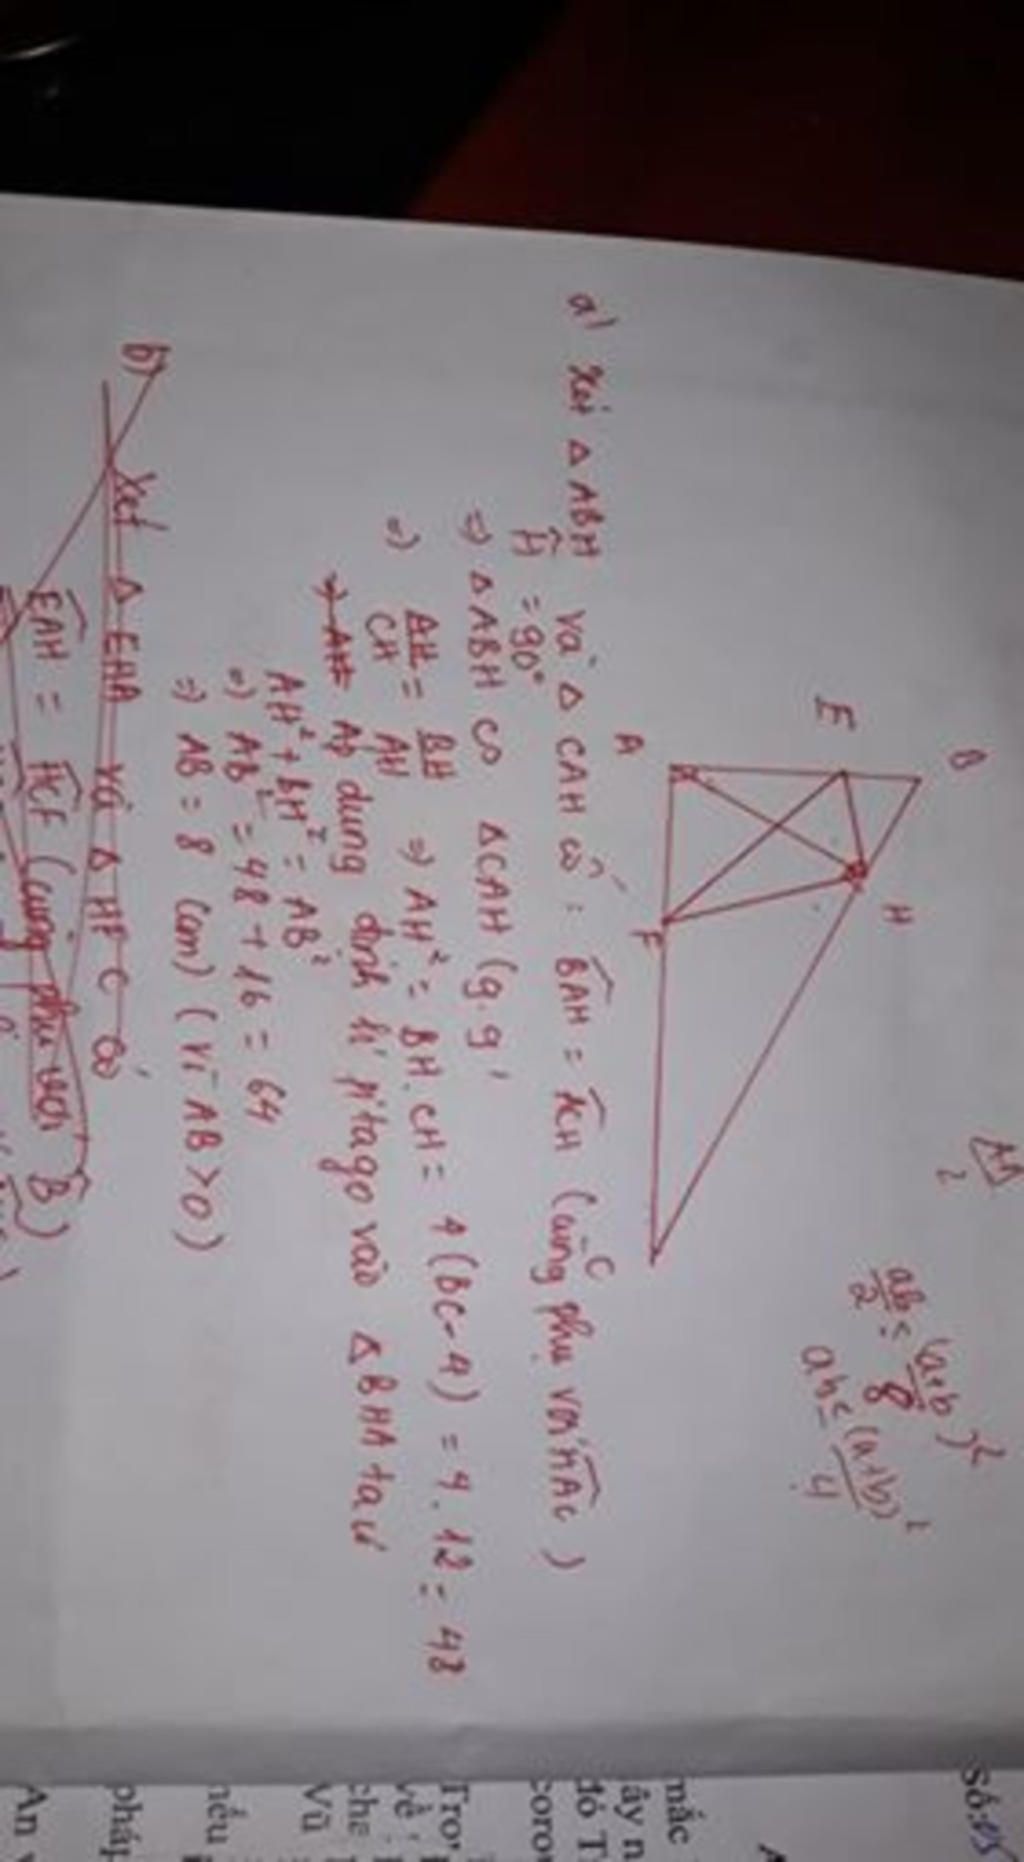 AH
2
ab/2 ≤ (a+b)²/8
ab ≤ (a+b)²/4
B
H
E
A
F
C
a) Xét Δ ABH và Δ CAH có : BAH = ACH (cùng phụ với HAC )
H = 90°
=> Δ ABH ∽ Δ CAH (g.g)
=> AH/CH = BH/AH => AH² = BH. CH = 4 (BC-4) = 4. 12 = 48
Áp dụng định lí Pitago vào Δ BHA ta có
AH² + BH² = AB²
=> AB² = 48 + 16 = 64
=> AB = 8 (cm) ( vì AB > 0 )
b) Xét Δ EHA và Δ HFC có
EAH = HCF (cùng phụ với B)
Số: 05
mắc
ây n
đó T
coron
Trơ
về
che
Vũ
nếu
pháp
An